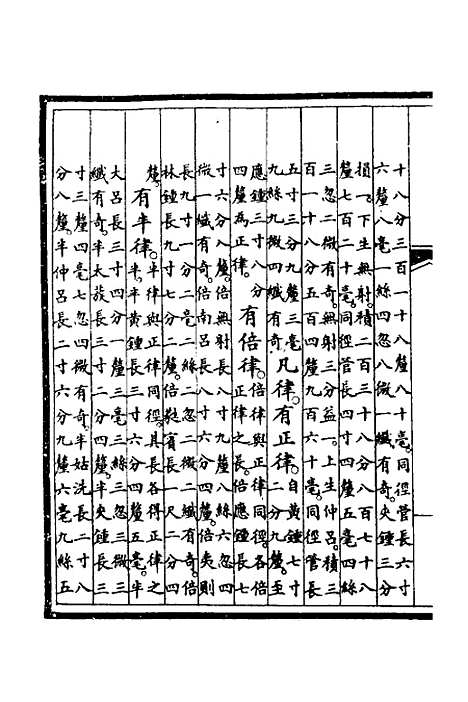 十八分三百一十八釐八十毫同徑管長六寸
六釐八毫一絲四忽八微一纖有奇夾鍾三分
損一下生無射積二百三十八分八百七十八
釐七百二十毫同徑管長四寸四釐五毫四絲
三忽二微有奇無射三分益一上生仲呂積三
百一十八分五百四釐九百六十毫同徑管長
五寸三分九釐三毫
九絲九微四纖有奇
凡律有正律
自黃鍾七寸
二分九釐至
應鍾三寸八分
四釐為正律
有倍律
倍律與正律同徑各倍
正律之長倍應鍾長七
寸六分八釐倍無射長八寸九釐八絲六忽四
微一纖有奇倍南呂長八寸六分四釐倍夷則
長九寸一分二毫二絲二忽二微二纖有奇倍
林鍾長九寸七分二釐倍蕤賓長一尺二分四
釐
有半律
半律與正律同徑其長各得正律之
半半黃鍾長三寸六分四釐五毫半
大呂長三寸四分一釐三毫三絲三忽三微三
纖有奇半太蔟長三寸二分四釐半夾鍾長三
寸三釐四毫七忽四微有奇半姑洗長二寸八
分八釐半仲呂長二寸六分九釐六毫九絲五